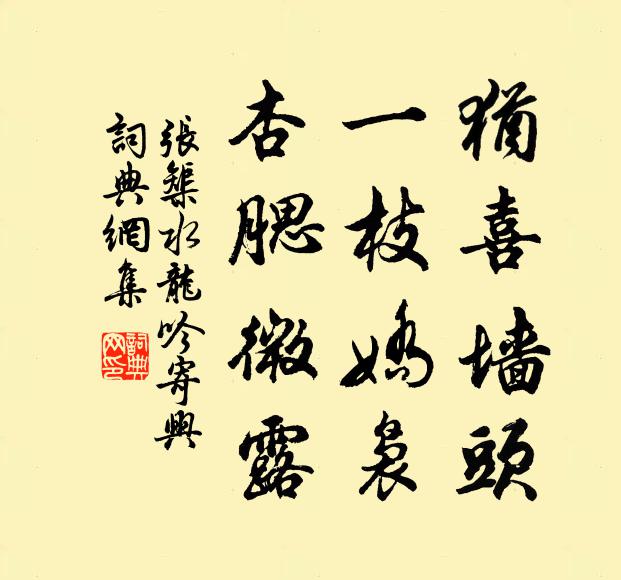 猶喜墙頭
一枝嬌裊
杏腮微露
張榘水龍吟寄興
詞典網集
詞典网印